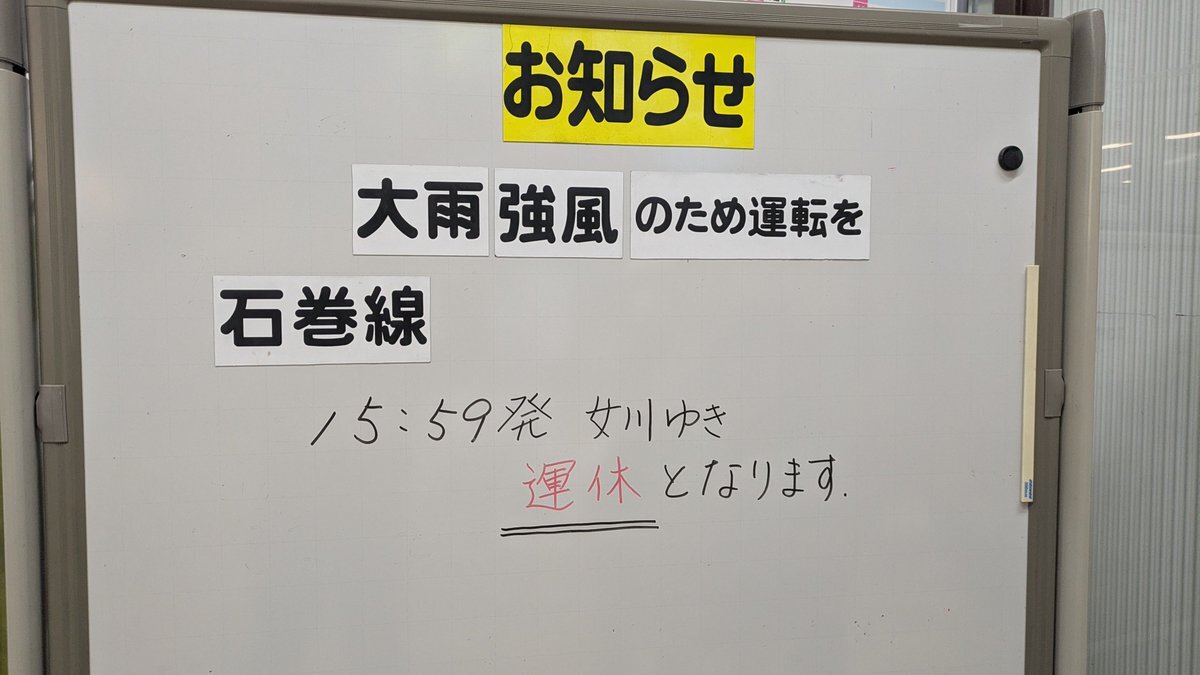 お知らせ
大雨 強風 のため運転を
石巻線
15:59発 女川ゆき
運休となります.